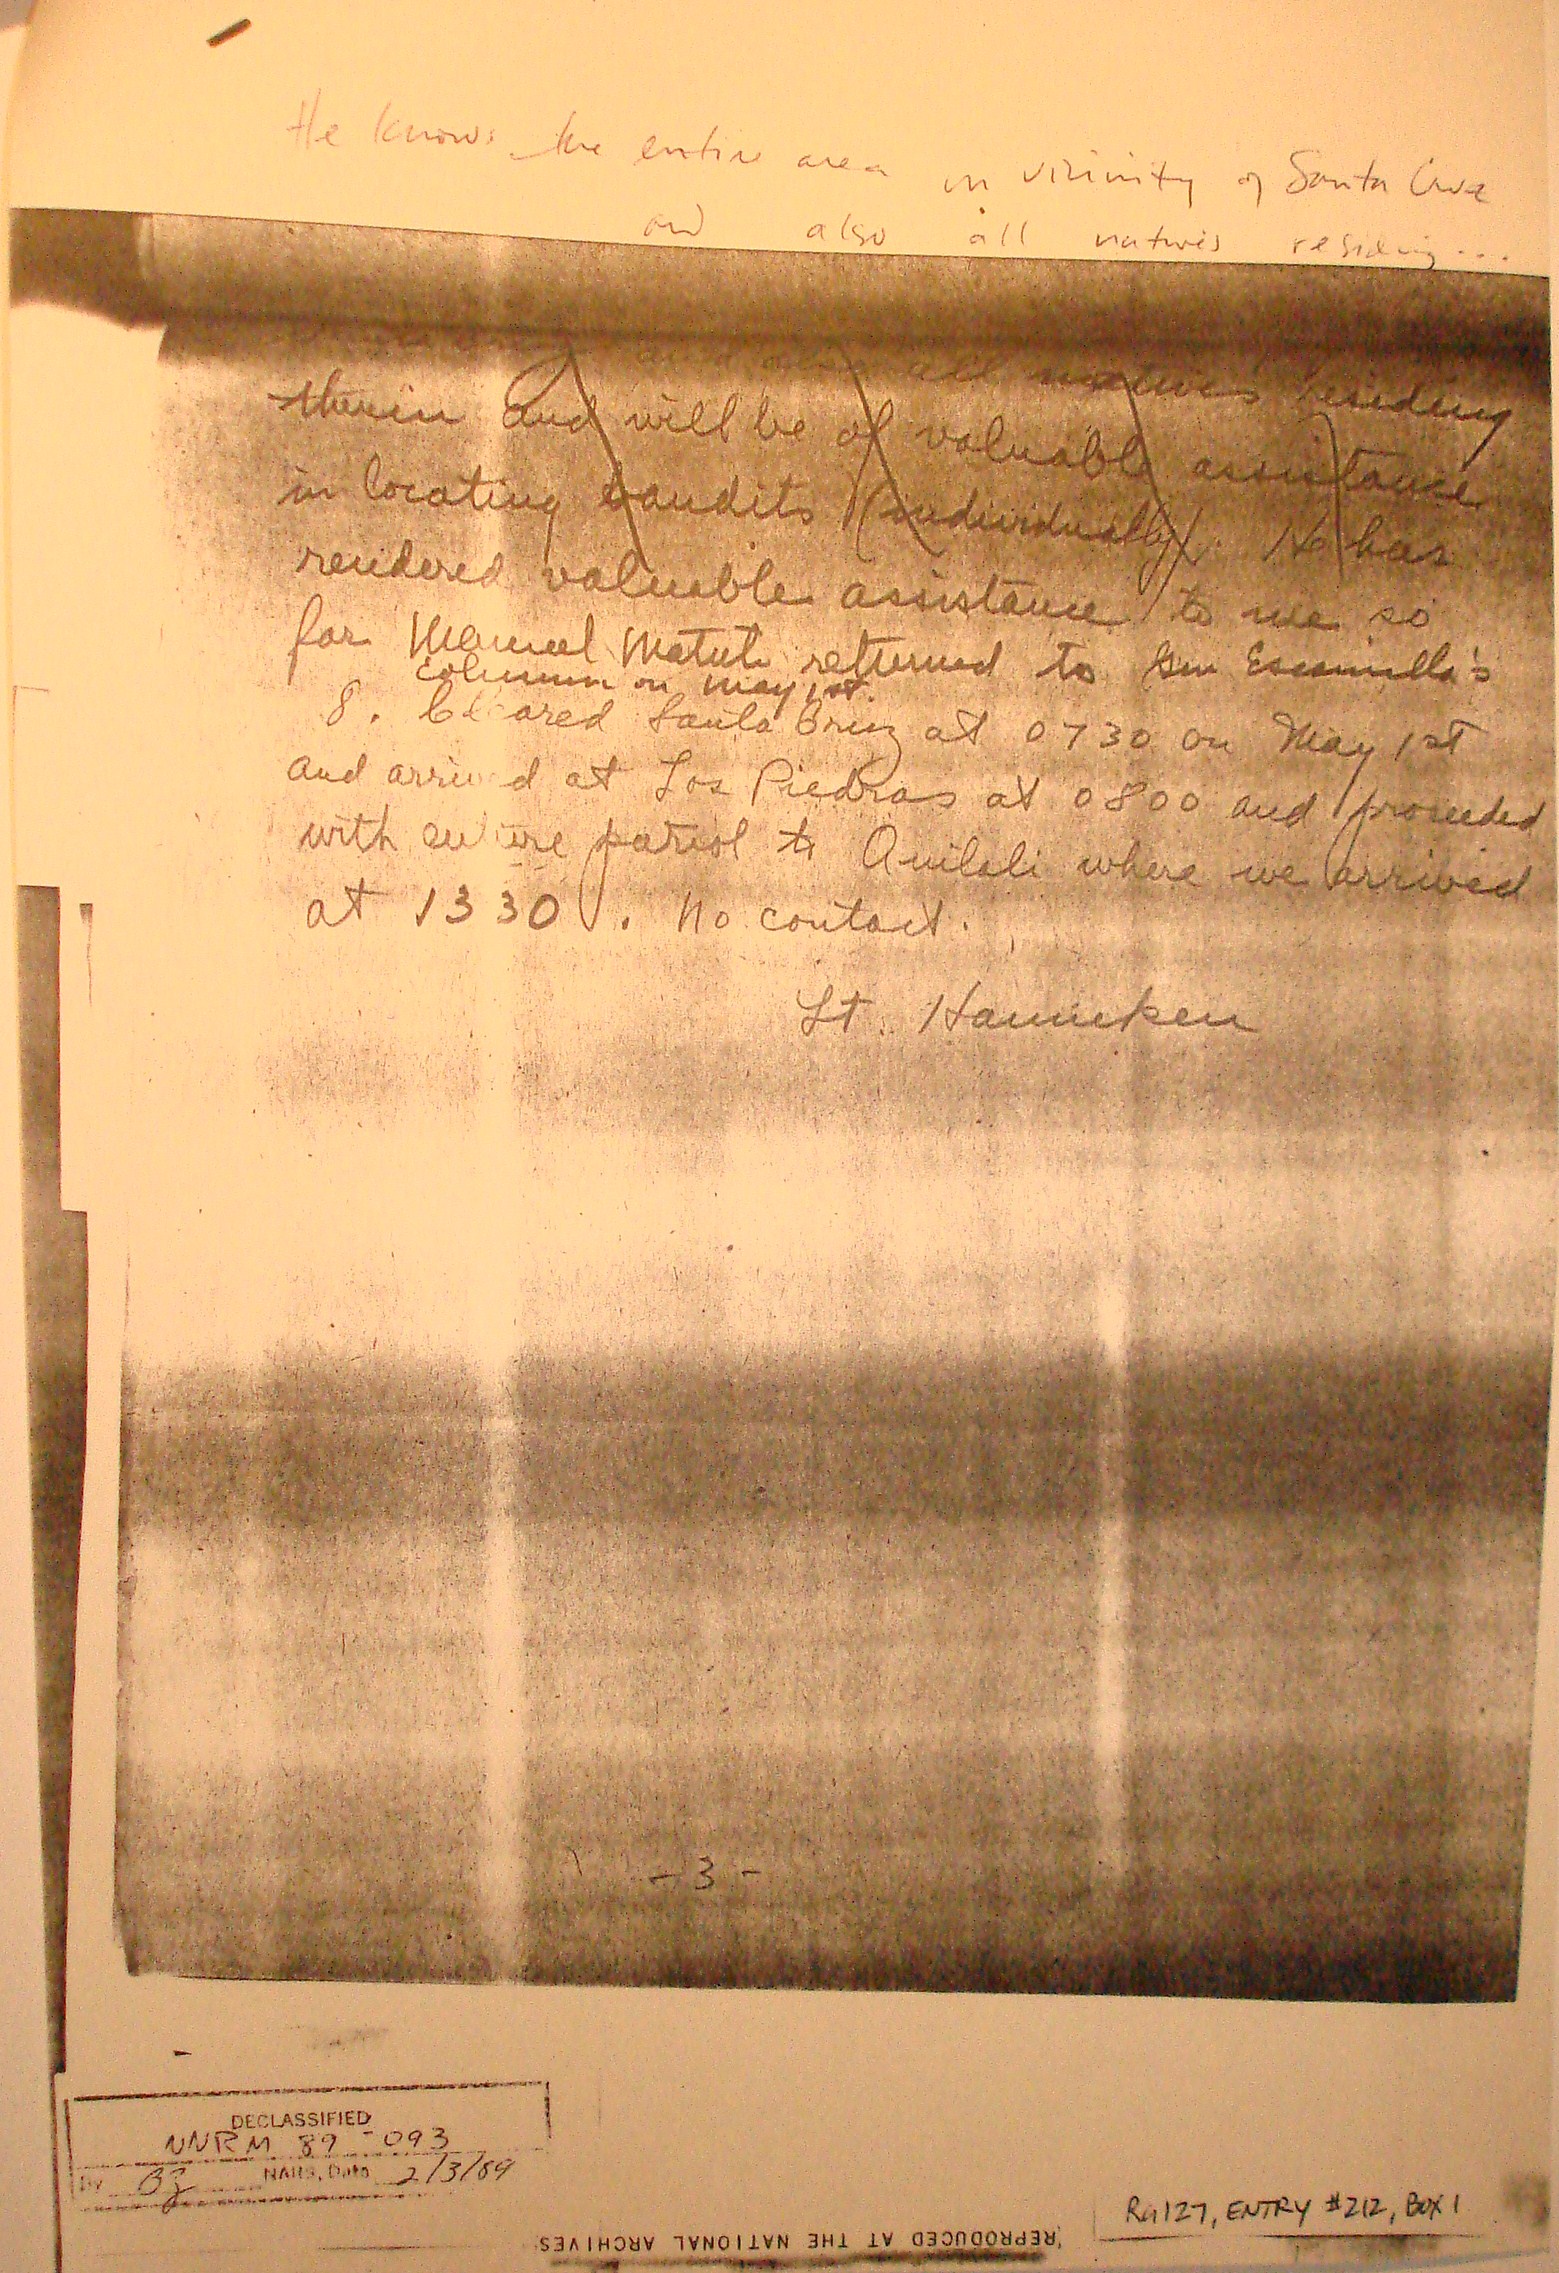 He knows the entire area in vicinity of Santa Cruz
and also all natives residing...
and also all natives residing
therein and will be of valuable assistance
in locating bandits (individually). He has
rendered valuable assistance to me so
far Manuel Matute returned to Gen Escamilla's
Column on May 1st.
8. Cleared Santa Cruz at 0730 on May 1st
and arrived at Los Piedras at 0800 and proceeded
with entire patrol to Quilali where we arrived
at 1330. No contact.
Lt. Hanneken
- 3 -
DECLASSIFIED
NNRM 89-093
By BZ NARS, Date 2/3/89
RG127, ENTRY #212, BOX 1
REPRODUCED AT THE NATIONAL ARCHIVES